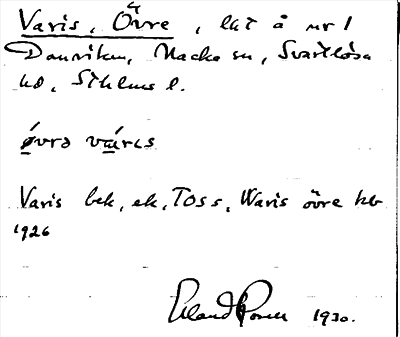 Varis, Övre, lht å nr 1
Danviken, Nacka sn, Svartlösa
hd, Sthlms l.
øvrə va̱rıs
Varis bek, ek, Toss, Waris övre hb
1926
Erland Rosell 1930.